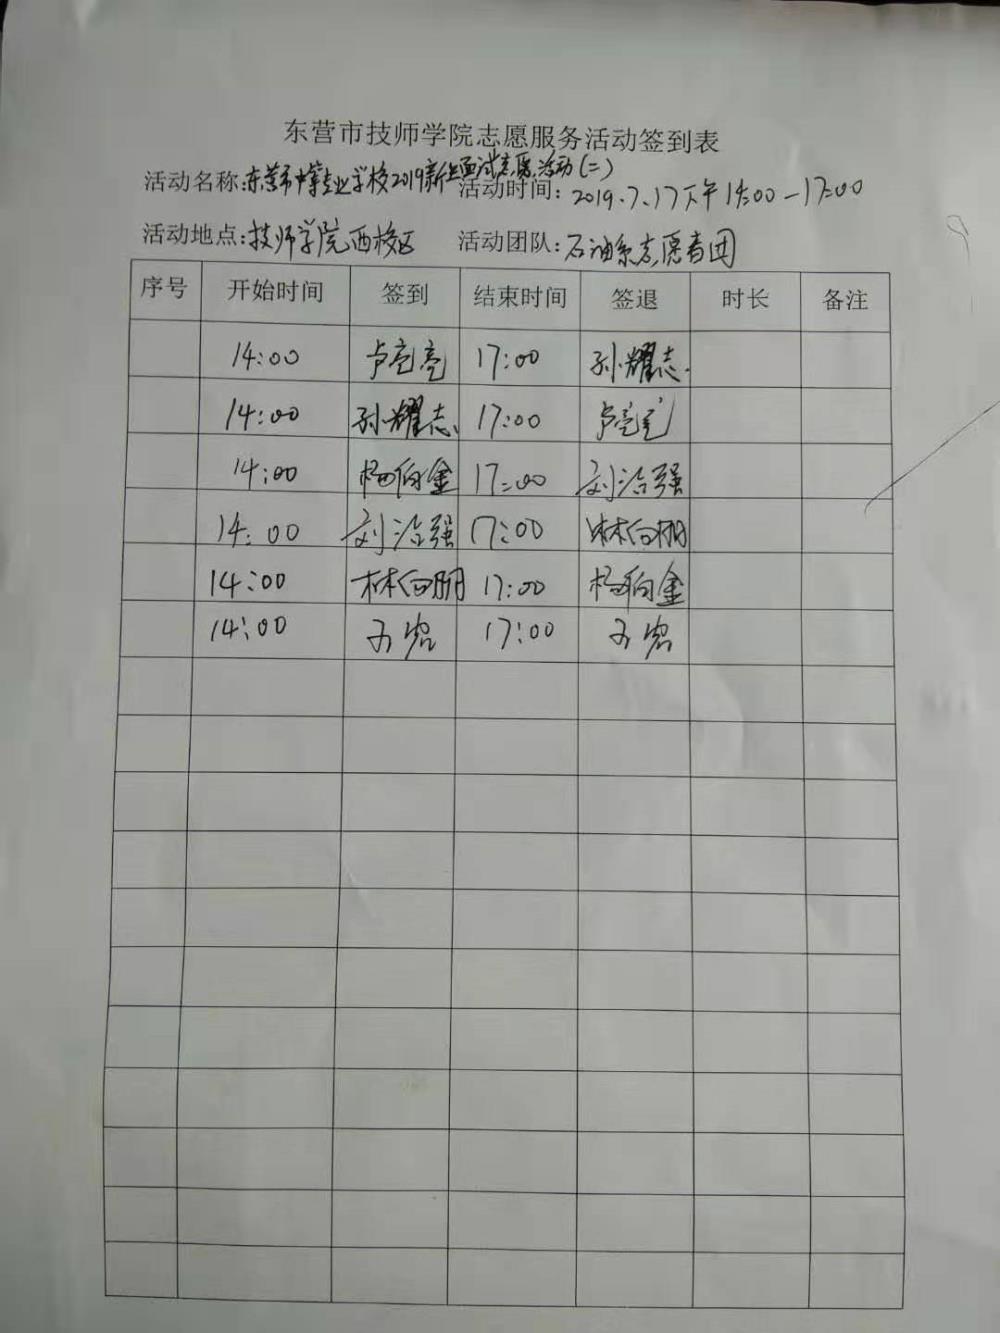 东营市技师学院志愿服务活动签到表
活动名称:东营市中等专业学校2019新生面试志愿活动(二)
活动时间: 2019.7.17下午14:00-17:00
活动地点:技师学院西校区 活动团队:石油系志愿者团
序号 开始时间 签到 结束时间 签退 时长 备注
14:00 卢亮亮 17:00 孙耀志.
14:00 孙耀志. 17:00 卢亮亮
14:00 杨伯金 17:00 刘治强
14:00 刘治强 17:00 林向明
14:00 林向明 17:00 杨伯金
14:00 17:00